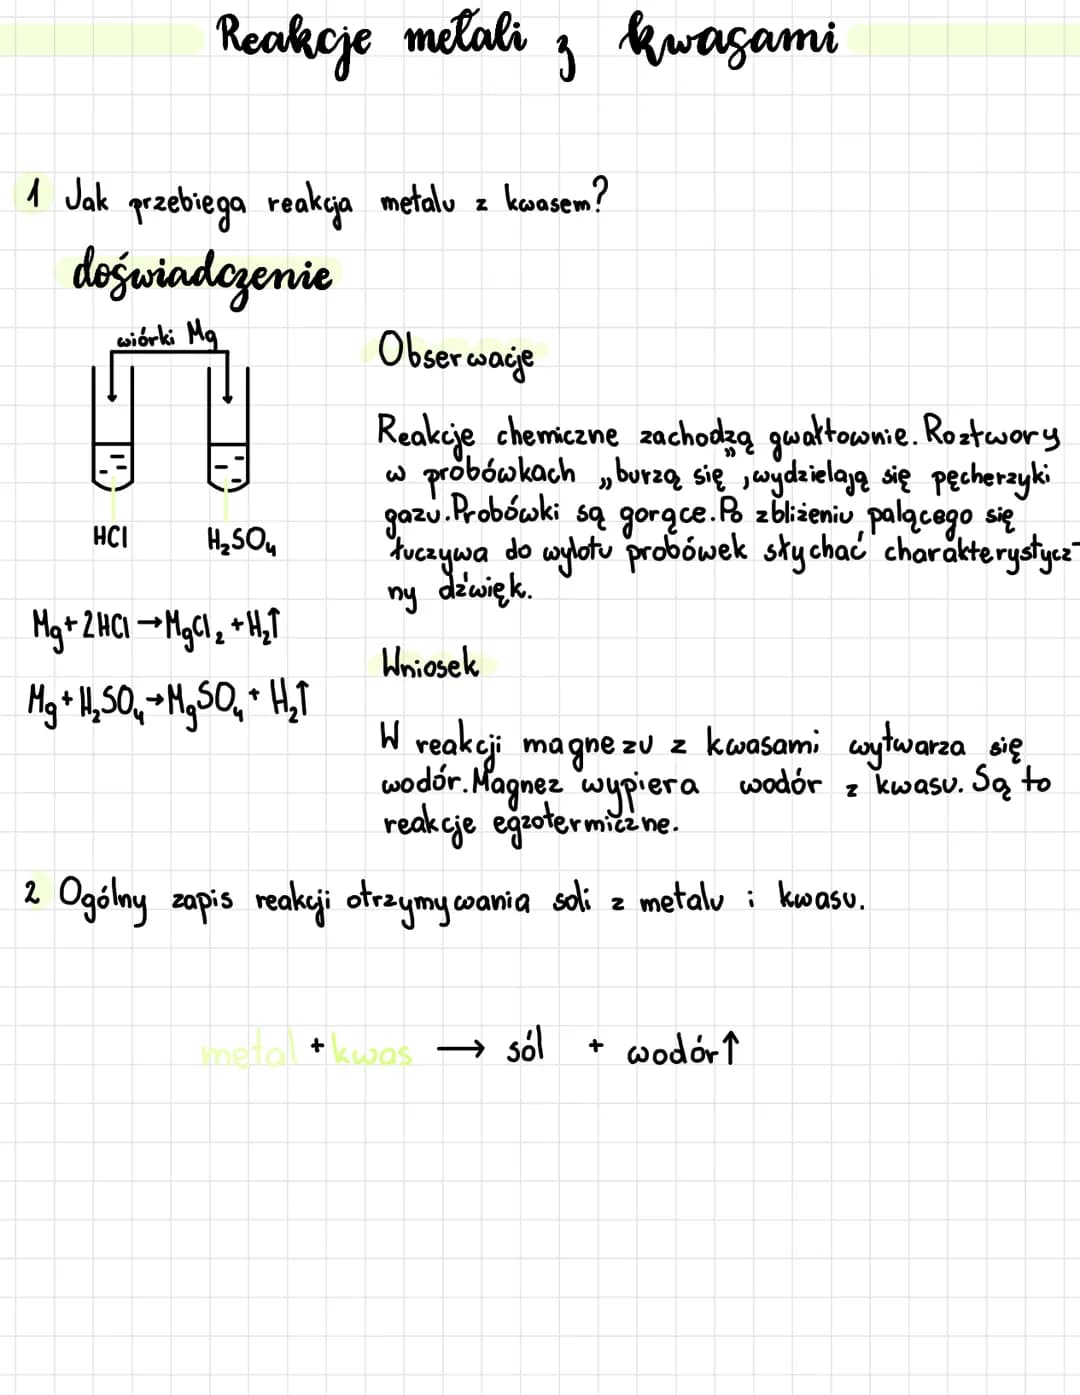 Reakcje metali z kwasami
1 Jak przebiega reakcja metalu z kwasem?
doświadczenie
wiórki Mg
HCl
H₂SO₄
Mg + 2HCl → MgCl₂ + H₂↑
Mg + H₂SO₄ → MgSO₄ + H₂↑
Obserwacje
Reakcje chemiczne zachodzą gwałtownie. Roztwory
w probówkach „burzą się”, wydzielają się pęcherzyki
gazu. Probówki są gorące. Po zbliżeniu palącego się
łuczywa do wylotu probówek słychać charakterystycz-
ny dźwięk.
Wniosek
W reakcji magnezu z kwasami wytwarza się
wodór. Magnez wypiera wodór z kwasu. Są to
reakcje egzotermiczne.
2 Ogólny zapis reakcji otrzymywania soli z metalu i kwasu.
metal + kwas → sól + wodór↑